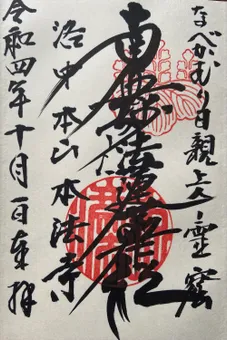 なべかむり日親上人霊窟
南無妙法蓮華経
洛中本山本法寺
令和四年十月一日来拝